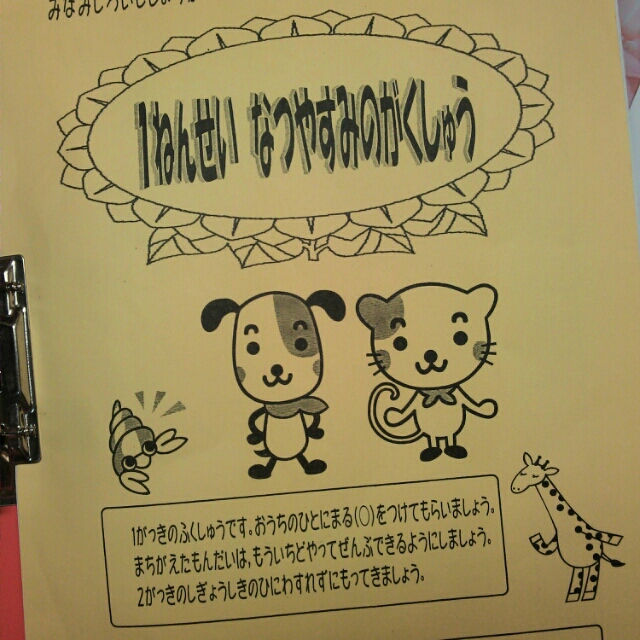 1ねんせい なつやすみのがくしゅう
1がっきのふくしゅうです。おうちのひとにまる(○)をつけてもらいましょう。
まちがえたもんだいは、もういちどやってぜんぶできるようにしましょう。
2がっきのしぎょうしきのひにわすれずにもってきましょう。